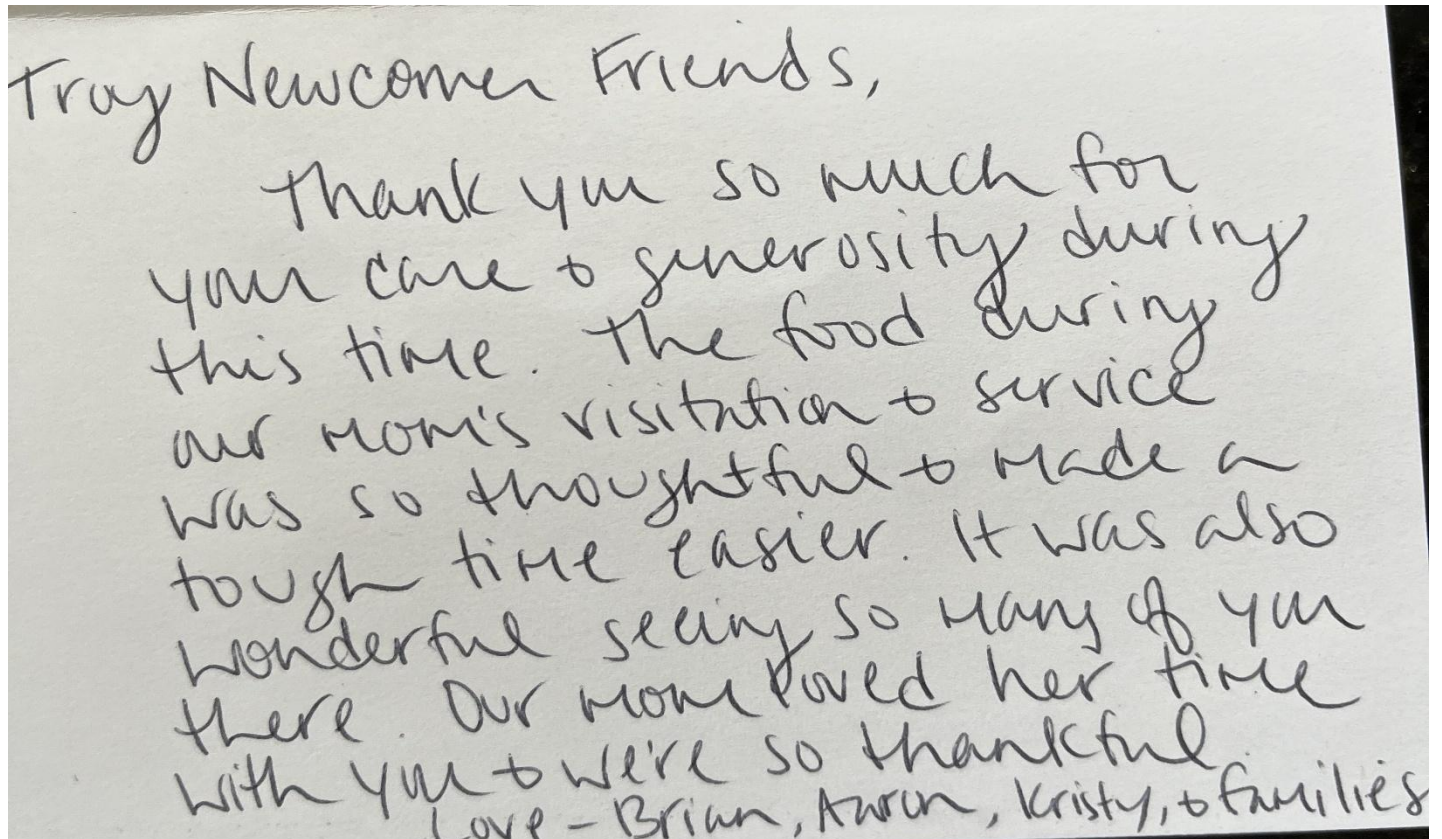 Troy Newcomer Friends,
Thank you so much for
your care & generosity during
this time. The food during
our mom's visitation & service
was so thoughtful & made a
tough time easier. It was also
wonderful seeing so many of you
there. Our mom loved her time
with you & we're so thankful.
Love - Brian, Aaron, Kristy, & families